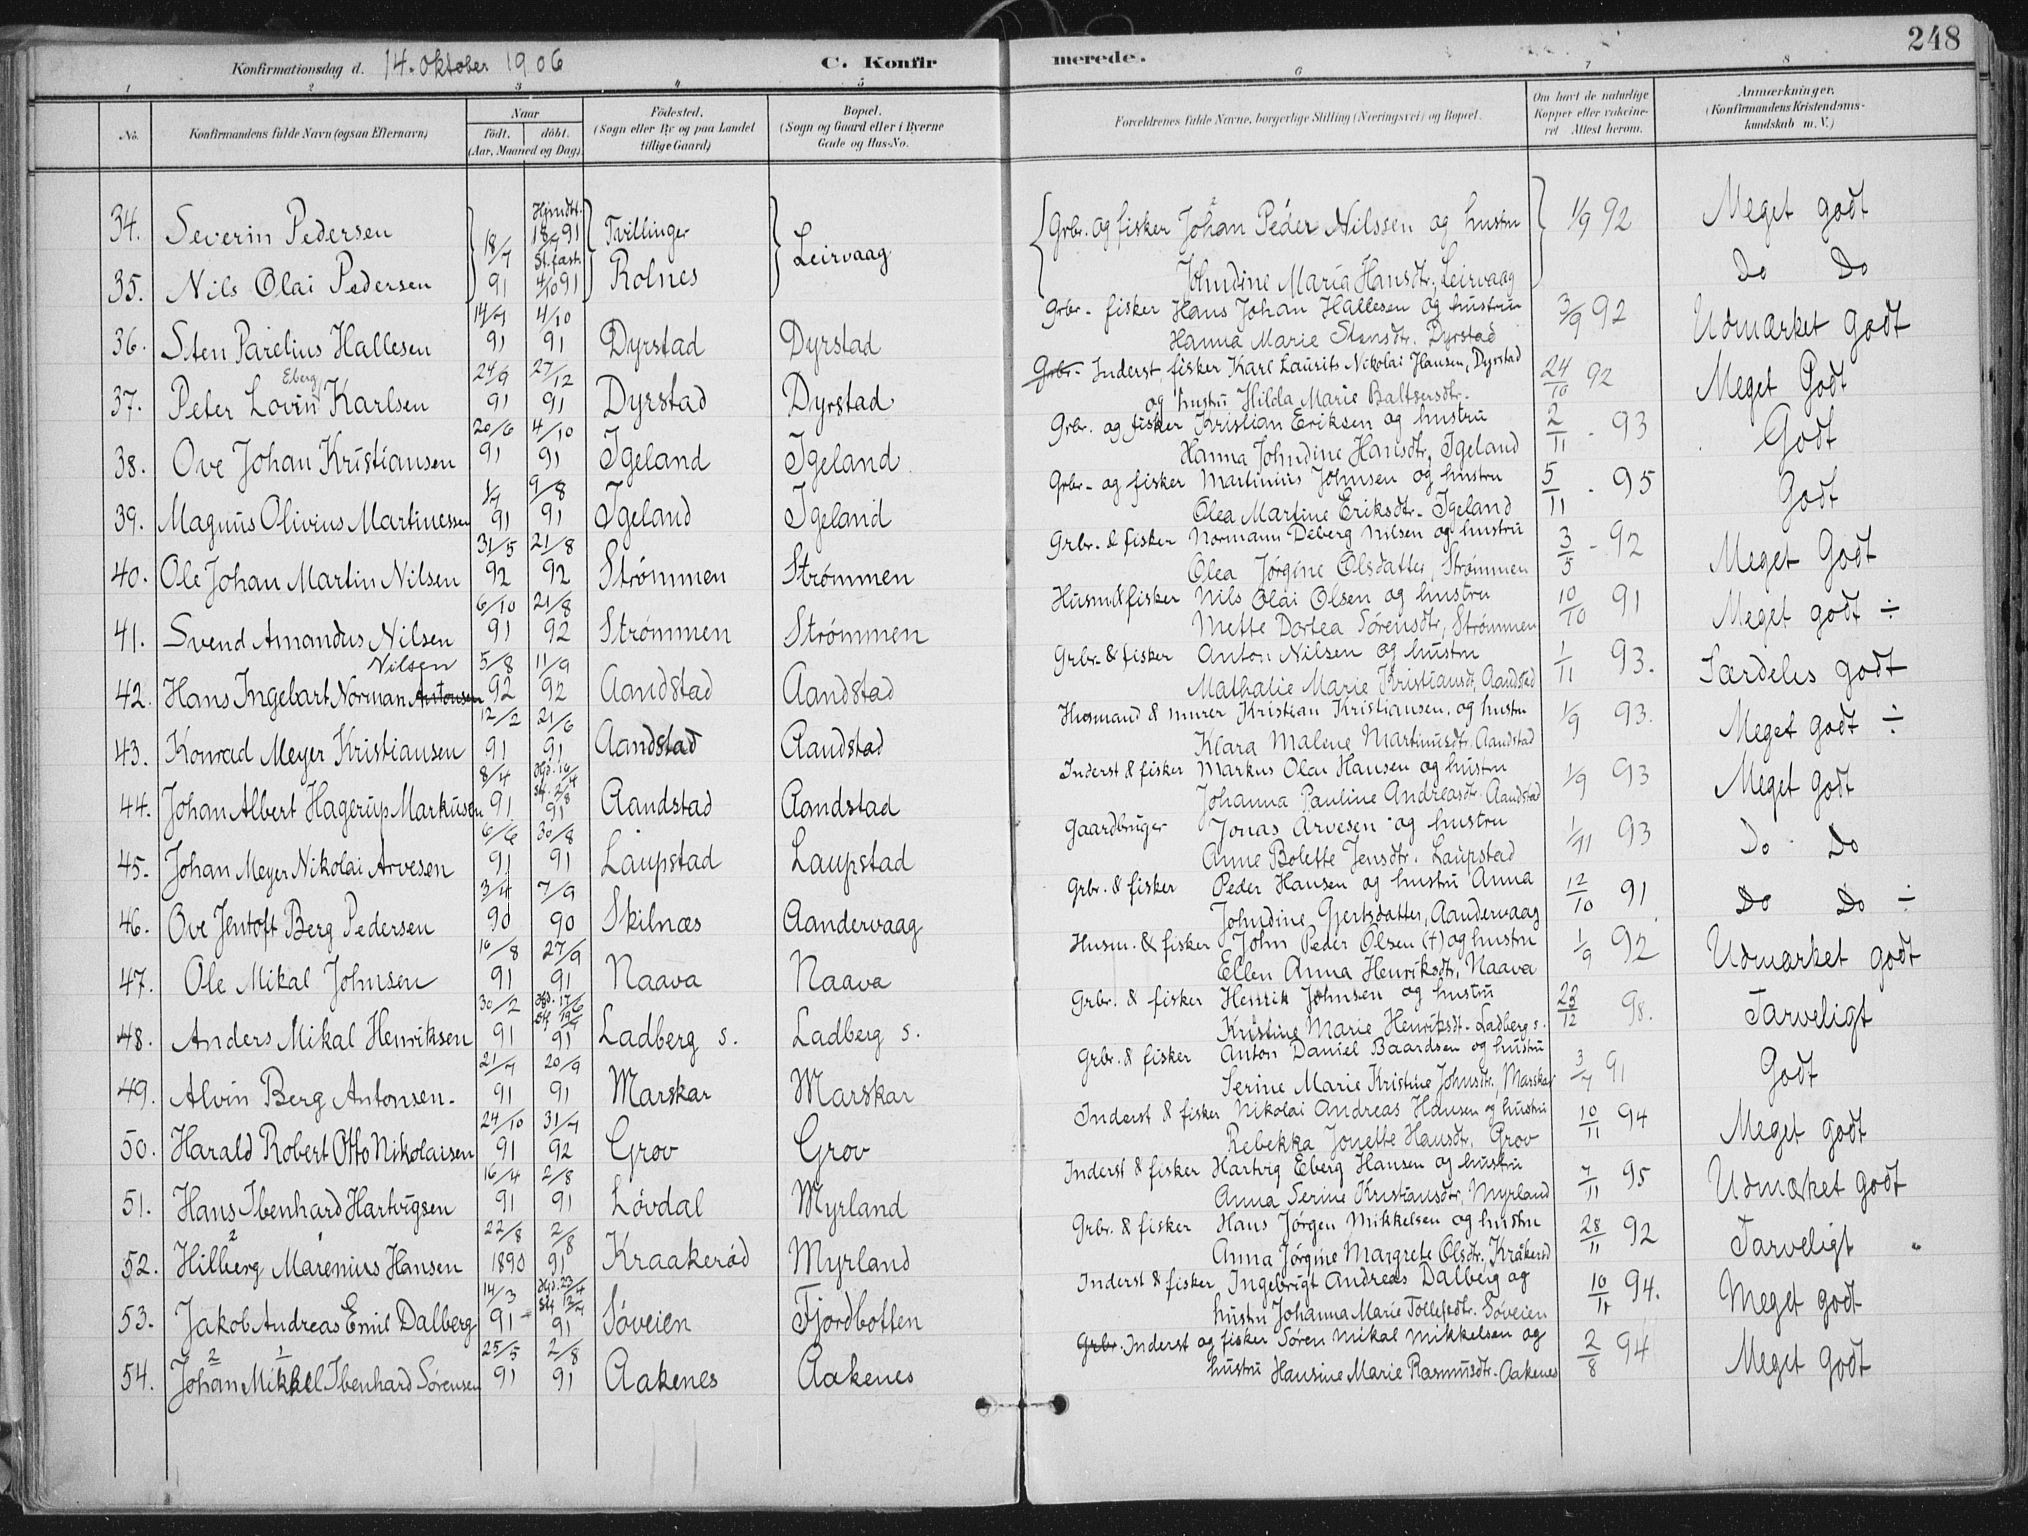 248
Konfirmationsdag d. 14. Oktober 1906 C. Konfir merede.
1 2 3 4 5 6 7 8
No. Konfirmandens fulde Navn (ogsaa Efternavn) Naar født. døbt. (Aar, Maaned og Dag) Fødested. (Sogn eller By og paa Landet tillige Gaard) Bopæl. (Sogn og Gaard eller i Byerne Gade og Hus-No. Forældrenes fulde Navne, borgerlige Stilling (Næringsvei) og Bopæl. Om havt de naturlige Kopper eller vakcineret Attest herom. Anmærkninger. (Konfirmandens Kristendomskundskab m. V.)
34. Severin Pedersen 18/7 91 Hjmdt. 18/7 91 Tvillinger Rolnes Leirvaag Grbr. og fisker Johan Peder Nilssen og hustru 1/9 92 Meget godt
35. Nils Olai Pedersen St. fast. 4/10 91 Johndine Maria Hansdtr. Leirvaag Do Do
36. Sten Parelius Hallesen 14/7 91 4/10 91 Dyrstad Dyrstad Grbr. fisker Hans Johan Hallesen og hustru 3/9 92 Udmærket godt
Hanna Marie Stensdtr. Dyrstad
37. Peter Lovin Eberg Karlsen 24/9 91 27/12 91 Dyrstad Dyrstad Grbr. Inderst, fisker Karl Laurits Nikolai Hansen, Dyrstad 24/10 92 Meget Godt
og hustru Hilda Marie Baltsersdtr.
38. Ove Johan Kristiansen 20/6 91 4/10 91 Igeland Igeland Grbr. og fisker Kristian Eriksen og hustru 2/11 - 93 Godt
Hanna Johndine Hansdtr, Igeland
39. Magnus Olivius Martinessen 1/7 91 9/8 91 Igeland Igeland Grbr. og fisker Martinius Johnsen og hustru 5/11 - 95 Godt
Olea Martine Eriksdtr. Igeland
40. Ole Johan Martin Nilsen 31/5 92 21/8 92 Strømmen Strømmen Grbr. & fisker Normann Deberg Nilsen og hustru 3/5 - 92 Meget Godt
Olea Jørgine Olsdatter, Strømmen
41. Svend Amandus Nilsen 6/10 91 21/8 92 Strømmen Strømmen Husm. & fisker Nils Olai Olsen og hustru 10/10 91 Meget godt ÷
Mette Dortea Sørensdtr, Strømmen
42. Hans Ingebart Norman Antonsen Nilsen 5/8 92 11/9 92 Aandstad Aandstad Grbr. & fisker Anton Nilsen og hustru 1/11 93. Særdeles godt
Mathalie Marie Kristiansdt, Aandstad
43. Konrad Meyer Kristiansen 12/2 91 21/6 91 Aandstad Aandstad Husmand & murer Kristian Kristiansen, og hustru 1/9 93. Meget godt ÷
Klara Malene Martinusdtr. Aandstad
44. Johan Albert Hagerup Markusen 8/4 91 Hjd. 16/4 Stf. 2/8 91 Aandstad Aandstad Inderst & fisker Markus Olai Hansen og hustru 1/9 93 Meget godt
Johanna Pauline Andreasdtr. Aandstad
45. Johan Meyer Nikolai Arvesen 6/6 91 30/8 91 Laupstad Laupstad Gaardbruger Jonas Arvesen og hustru 1/11 93 Do Do
Anne Bolette Jensdtr. Laupstad
46. Ove Jentoft Berg Pedersen 3/4 90 7/9 90 Skilnæs Aandervaag Grbr. & fisker Peder Hansen og hustru Anna 12/10 91 Do Do ÷
Johndine Gjertsdatter, Aandervaag
47. Ole Mikal Johnsen 16/8 91 27/9 91 Naava Naava Husm. & fisker John Peder Olsen (†) og hustru 1/9 92 Udmærket godt
Ellen Anna Henriksdtr, Naava
48. Anders Mikal Henriksen 30/2 91 Hjd. 17/6 Stf. 19/7 91 Ladberg s. Ladberg s. Grbr. & fisker Henrik Johnsen og hustru 22/12 98. Tarveligt
Kristine Marie Henriksdt. Ladberg s.
49. Alvin Berg Antonsen. 21/7 91 20/9 91 Marskar Marskar Grbr. & fisker Anton Daniel Baardsen og hustru 3/7 91 Godt
Serine Marie Kristine Johnsdtr, Marskar
50. Harald Robert Otto Nikolaisen 24/10 91 31/7 92 Grov Grov Inderst & fisker Nikolai Andreas Hansen og hustru 10/11 94 Meget godt
Rebekka Jonette Hansdtr, Grov
51. Hans Ibenhard Hartvigsen 16/4 91 2/8 91 Løvdal Myrland Inderst & fisker Hartvig Eberg Hansen og hustru 7/11 95 Udmærket godt
Anna Serine Kristiansdtr, Myrland
52. Hilberg 2 Marenius 1 Hansen 22/8 1890 2/8 91 Kraakerød Myrland Grbr. & fisker Hans Jørgen Mikkelsen og hustru 28/11 92 Tarveligt
Anna Jørgine Margrete Olsdtr, Kråkerød
53. Jakob Andreas Emil Dalberg 14/3 91 Hjd. 23/4 Stf. 12/7 91 Søveien Fjordbotten Inderst & fisker, Ingebrigt Andreas Dalberg og 10/11 94. Meget godt
hustru Johanna Marie Tollefsdtr. Søveien
54. Johan 2 Mikkel 1 Ibenhard Sørensen 25/5 91 2/8 91 Aakenes Aakenes Grbr. Inderst og fisker Søren Mikal Mikkelsen og 2/8 94 Meget godt
hustru Hansine Marie Rasmusdtr. Aakenes